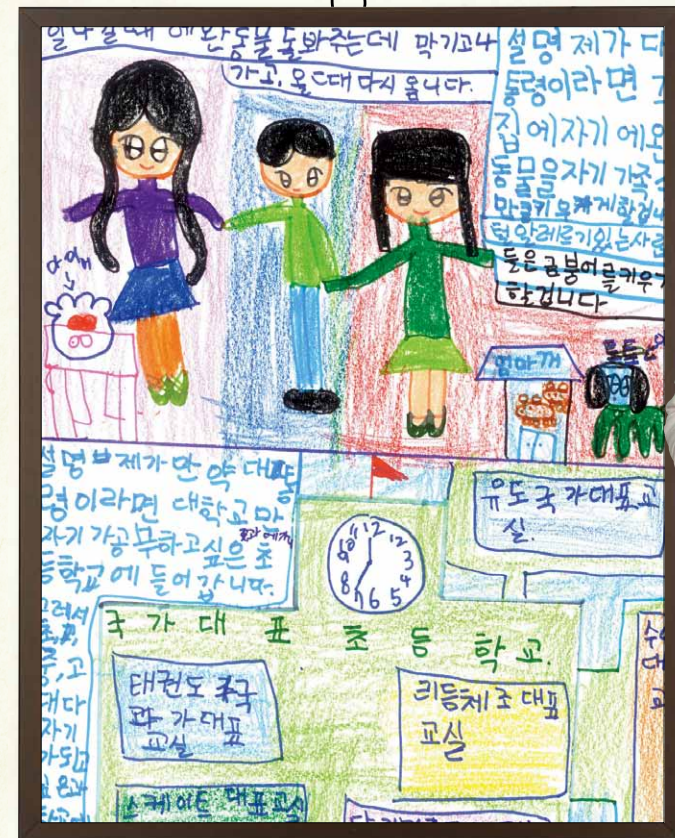 일나갈때 애완동물돌봐주는데 맞기고나
가고, 올때다시 옵니다.
설명 제가 대
통령이라면
집에자기애완
동물을자기 가족
만큼키우게할겁니
털알레르기있는사람
들은금붕어를키우
할겁니다
엄마께
설명 제가만약 대통
령이라면 대학교만
자기가공부하고싶은초
등학교에 들어갑니다.
그래서
초,
중,고
대다
자기
가되고
싶은과
국가대표 초등 학교.
12
1
2
3
4
5
6
7
8
9
10
11
유도국가대표교
실.
태권도 국
가대표
교실
리듬체조 대표
교실
스케이트 대표교실
수
대
교